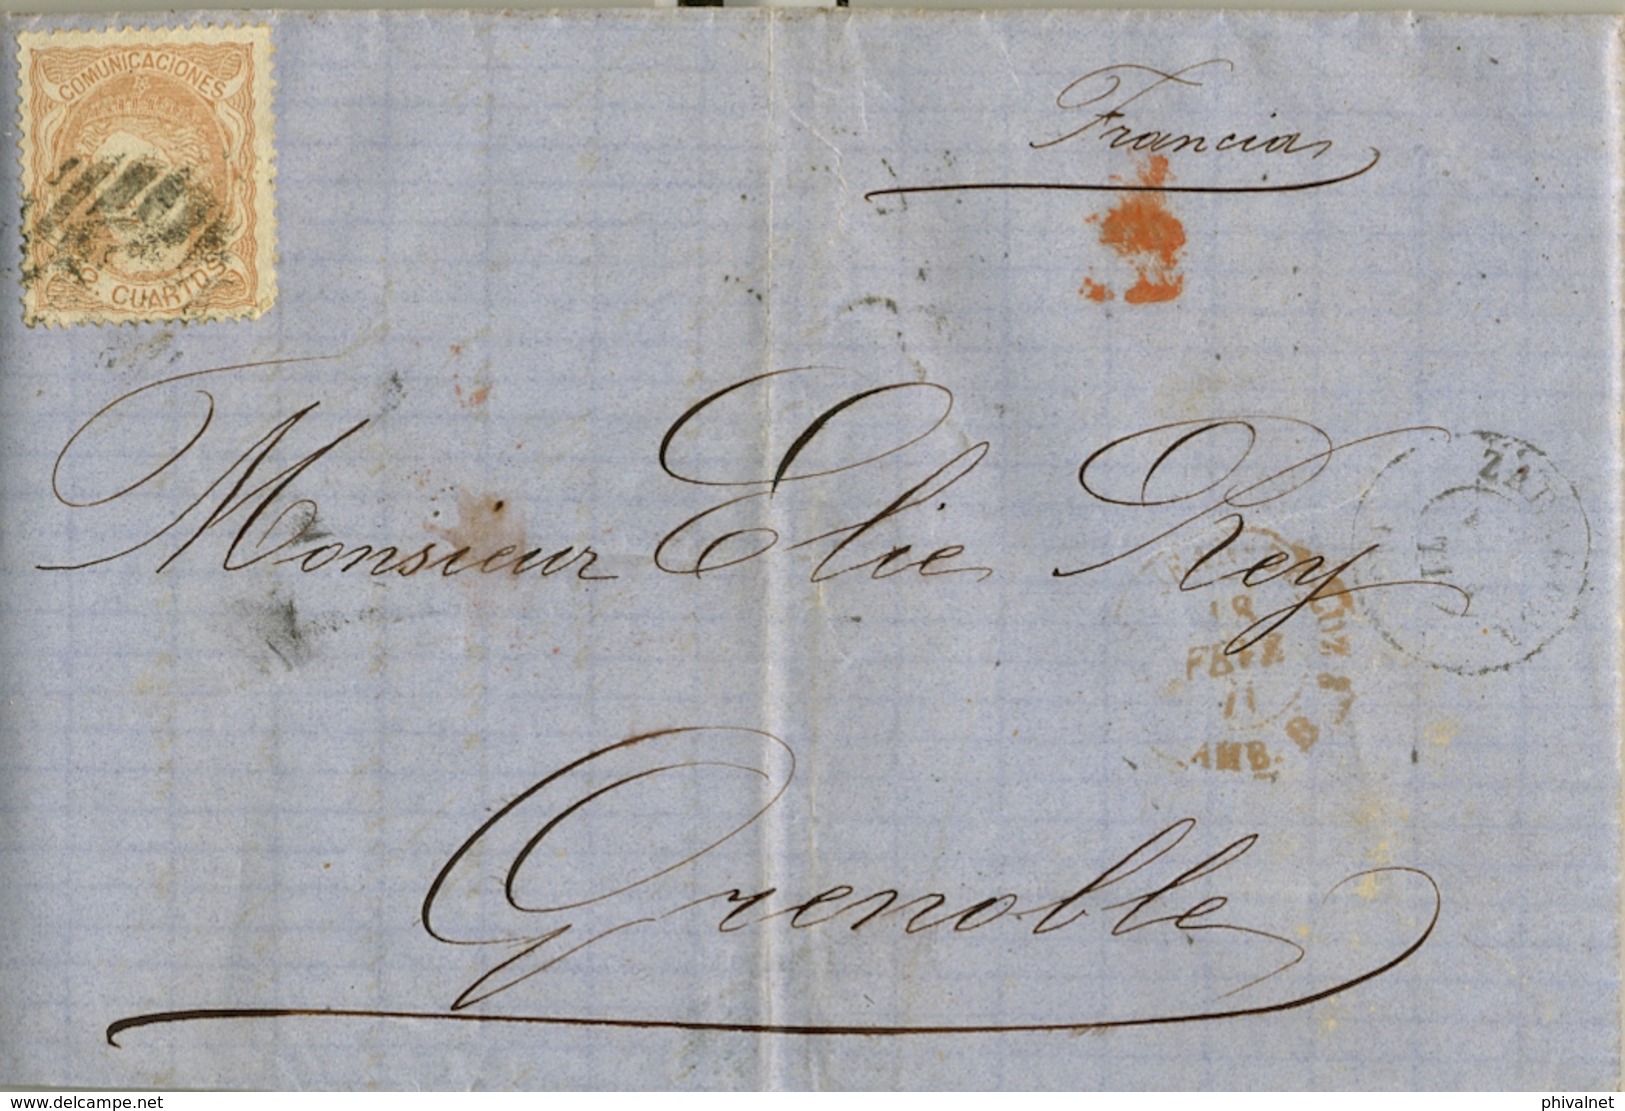 COMUNICACIONES
CUARTOS
Francia
Monsieur Elie Rey
71
18
FEVR
71
AMB.
Grenoble
www.delcampe.net
phivalnet